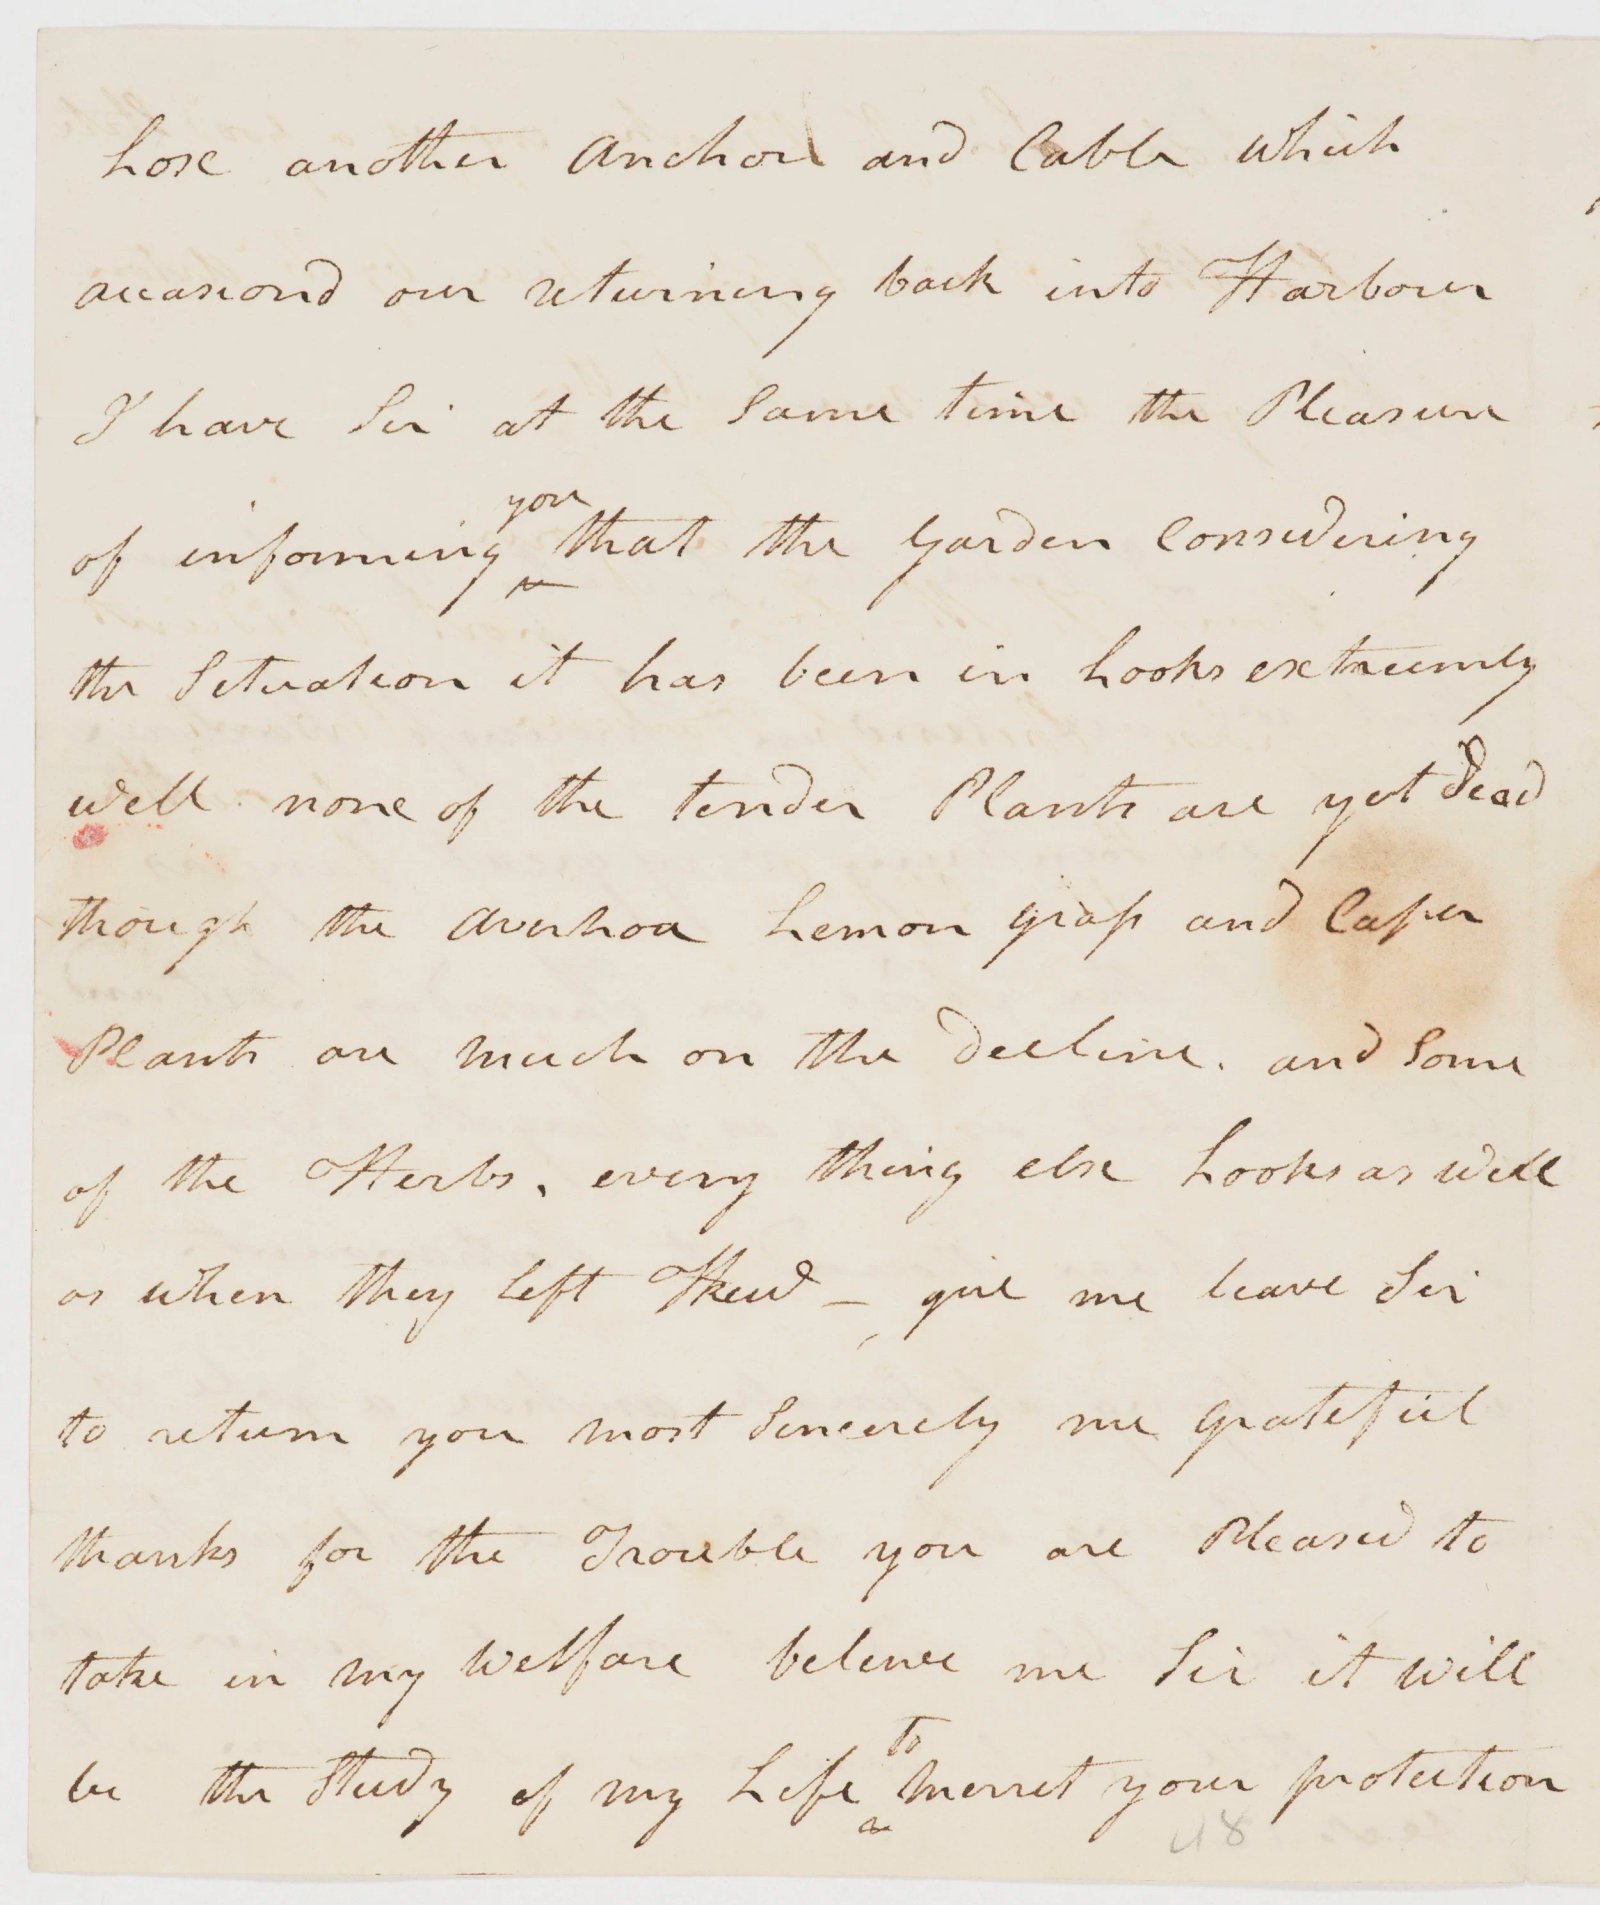 Lose another Anchor and Cable which
occasiond our returning back into Harbour
I have Sir at the Same time the Pleasure
of informing you that the Garden Considering
the Situation it has been in Looks extreemly
well none of the tender Plants are yet Dead
though the Averhoa Lemon grass and Caper
Plants are much on the Decline. and Some
of the Herbs, every thing else Looks as well
as when they Left Kew – give me leave Sir
to return you most Sincerely me grateful
thanks for the Trouble you are Pleased to
take in my Welfare beleive me Sir it will
be the Study of my Life To Merret your protection
48